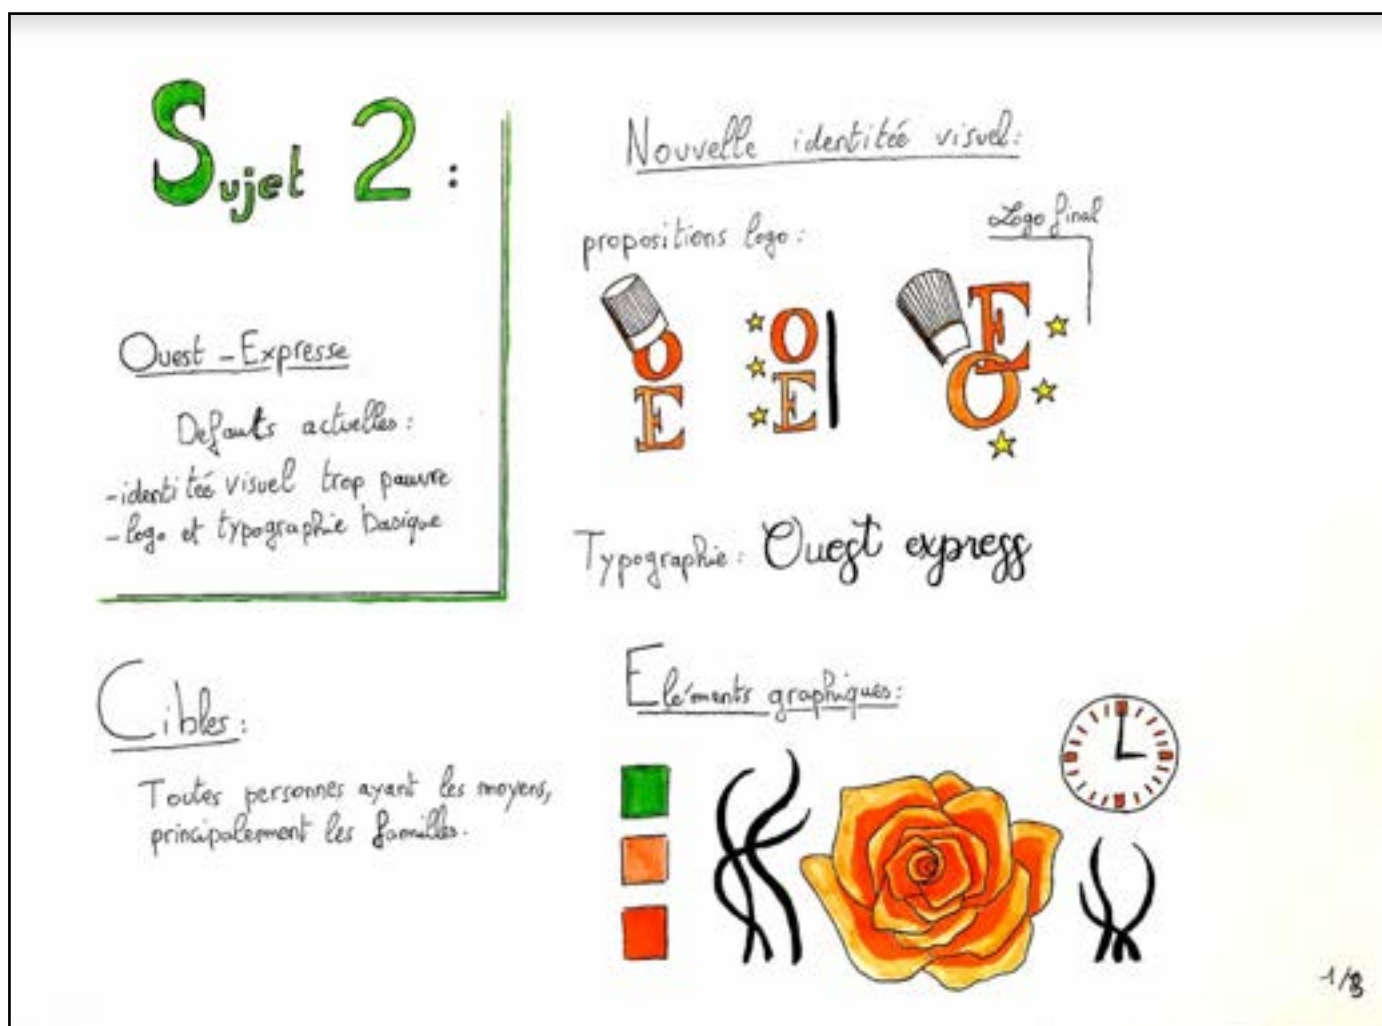 Sujet 2 :
Ouest - Expresse
Defauts actuelles :
- identitée visuel trop pauvre
- logo et typographie basique
Cibles :
Toutes personnes ayant les moyens,
principalement les familles.
Nouvelle identitée visuel :
propositions logo :
Logo final
O
E
O
E
E
O
Typographie : Ouest express
Eléments graphiques :